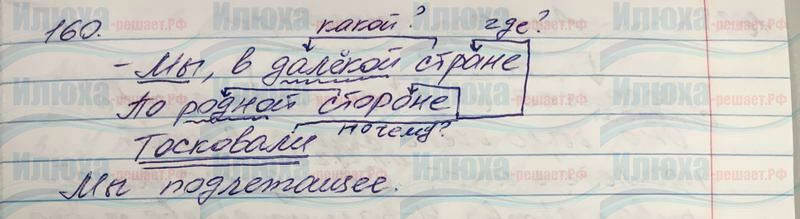 какой? где?
160.
- Мы, в далёкой стране
По родной стороне
почему?
Тосковали
Мы подлежащее.
Илюха-решает.РФ